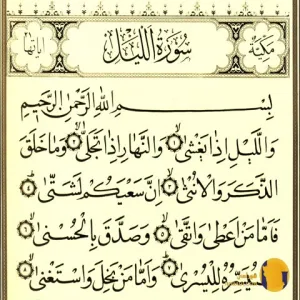 مكية سورة الليل آياتها ٢١
بِسْمِ اللَّهِ الرَّحْمَٰنِ الرَّحِيمِ
وَاللَّيْلِ إِذَا يَغْشَىٰ ١ وَالنَّهَارِ إِذَا تَجَلَّىٰ ٢ وَمَا خَلَقَ
الذَّكَرَ وَالْأُنثَىٰ ٣ إِنَّ سَعْيَكُمْ لَشَتَّىٰ ٤
فَأَمَّا مَنْ أَعْطَىٰ وَاتَّقَىٰ ٥ وَصَدَّقَ بِالْحُسْنَىٰ ٦
فَسَنُيَسِّرُهُ لِلْيُسْرَىٰ ٧ وَأَمَّا مَن بَخِلَ وَاسْتَغْنَىٰ ٨